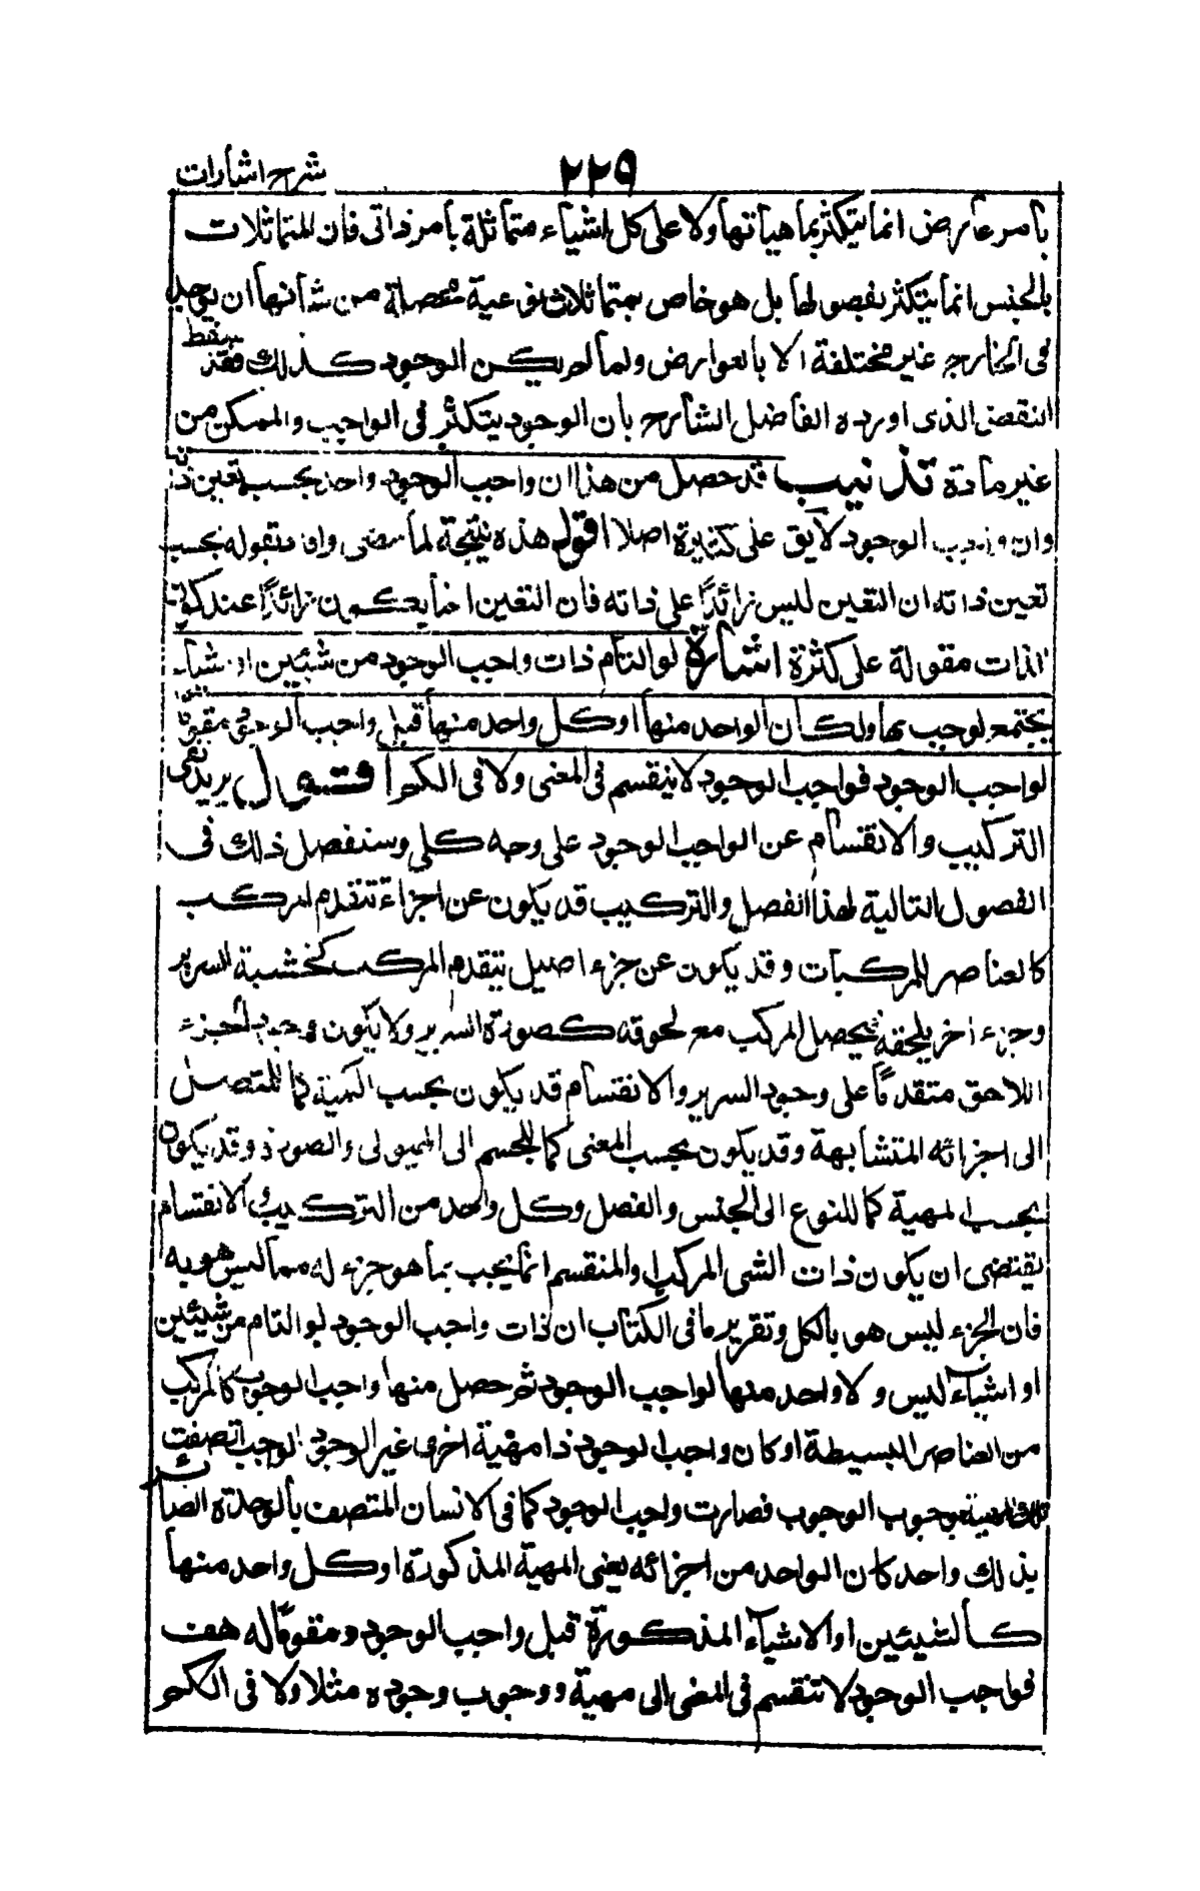 شرح اشارات
٢٢٩
بأمر عارض انما يتكثر بماهياتها ولا على كل اشياء متماثلة بأمر ذاتى فان المتماثلات
بالجنس انما يتكثر بفصولها بل هو خاص بمتماثلات نوعية محصلة من شأنها ان يوجد
فى الخارج غير مختلفة الا بالعوارض ولما لم يكن الوجود كذلك فقد سقط
النقض الذى اورده الفاضل الشارح بان الوجود يتكثر فى الواجب والممكن من
غير مادة تذنيب قد حصل من هذا ان واجب الوجود واحد بحسب تعين ذاته
وان واجب الوجود لا يق على كثيرة اصلا اقول هذه نتيجة لما مضى وافاد بقوله بحسب
تعين ذاته ان التعين ليس زائدا على ذاته فان التعين انما يكون زائدا عند كون
الذات مقولة على كثرة اشارة لو التأم ذات واجب الوجود من شيئين او اشياء
تجتمع لوجب بها ولكان الواحد منها او كل واحد منها قبل واجب الوجود ومقوما
لواجب الوجود فواجب الوجود لا ينقسم فى المعنى ولا فى الكم اقول يريد نفى
التركيب والانقسام عن الواجب الوجود على وجه كلى وسنفصل ذلك فى
الفصول التالية لهذا الفصل والتركيب قد يكون عن اجزاء تتقدم المركب
كالعناصر للمركبات وقد يكون عن جزء اصيل يتقدم المركب كخشبة السرير
وجزء اخر يلحقه فيحصل المركب مع لحوقه كصورة السرير ولا يكون وجود الجزء
اللاحق متقدما على وجود السرير والانقسام قد يكون بحسب الكمية كما للمتصل
الى اجزائه المتشابهة وقد يكون بحسب المعنى كما للجسم الى الهيولى والصورة وقد يكون
بحسب المهية كما للنوع الى الجنس والفصل وكل واحد من التركيب والانقسام
يقتضى ان يكون ذات الشى المركب والمنقسم انما يجب بما هو جزء له مما ليس هو به
فان الجزء ليس هو بالكل وتقرير ما فى الكتاب ان ذات واجب الوجود لو التام من شيئين
او اشياء ليس ولا واحد منها لواجب الوجود ثم حصل منها واجب الوجود كالمركب
من العناصر البسيطة او كان واجب الوجود ذا مهية اخرى غير الوجود الواجب اتصفت
تلك المهية بوجوب الوجوب فصارت واجب الوجود كما فى الانسان المتصف بالوحدة الصائر
بذلك واحد كان الواحد من اجزائه يعنى المهية المذكورة او كل واحد منها
كالشيئين او الاشياء المذكورة قبل واجب الوجود ومقوما له هف
فواجب الوجود لا تنقسم فى المعنى الى مهية ووجوب وجوده مثلا ولا فى الكم